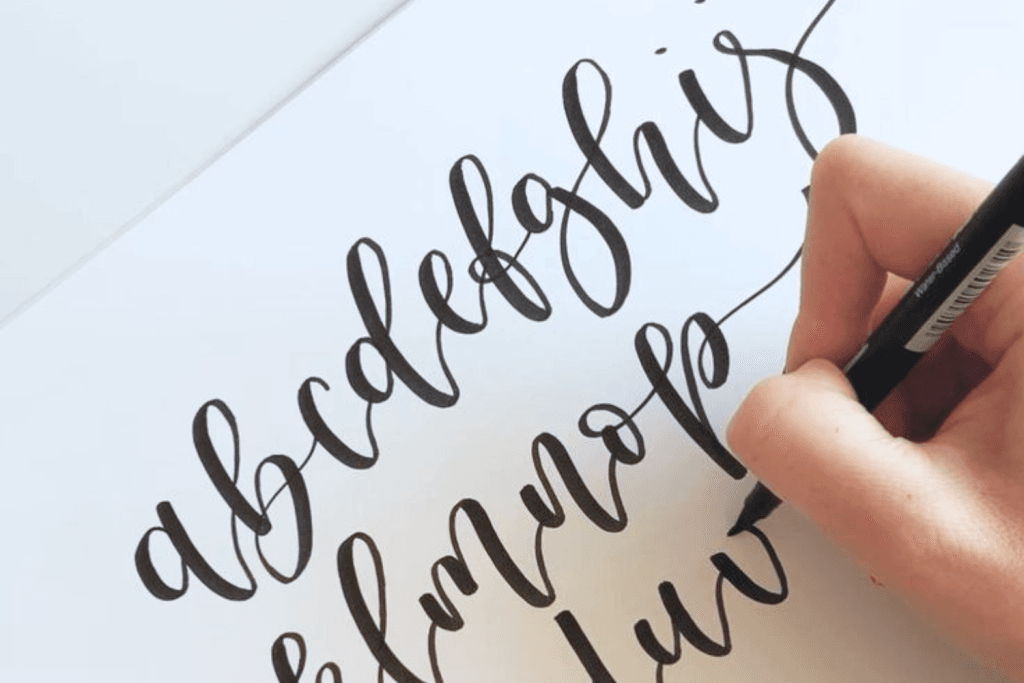 abcdefghij
klmnop
uv
Water-Based